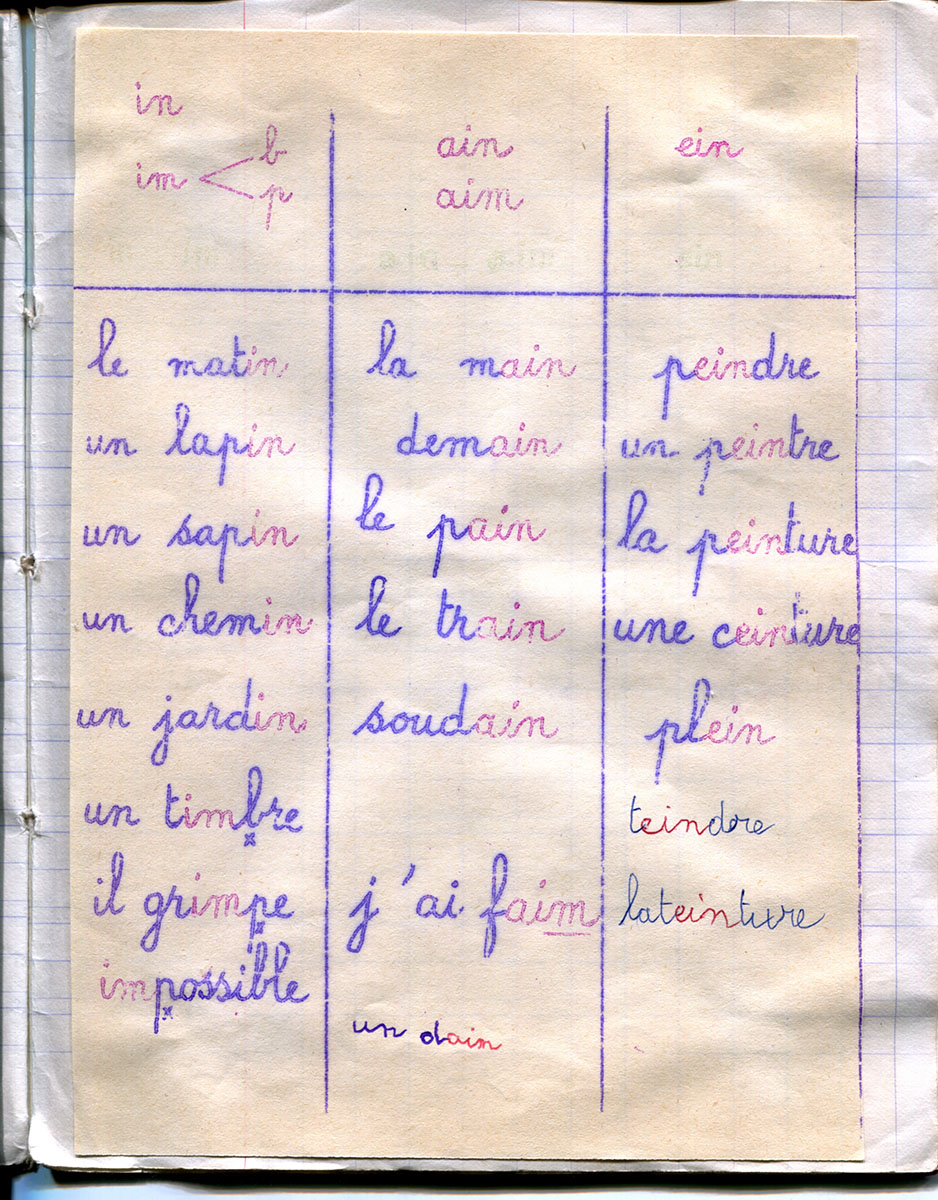 in
im < b
p
ain
aim
ein
le matin
un lapin
un sapin
un chemin
un jardin
un timbre
il grimpe
impossible
la main
demain
le pain
le train
soudain
j'ai faim
un dain
peindre
un peintre
la peinture
une ceinture
plein
teindre
lateinture